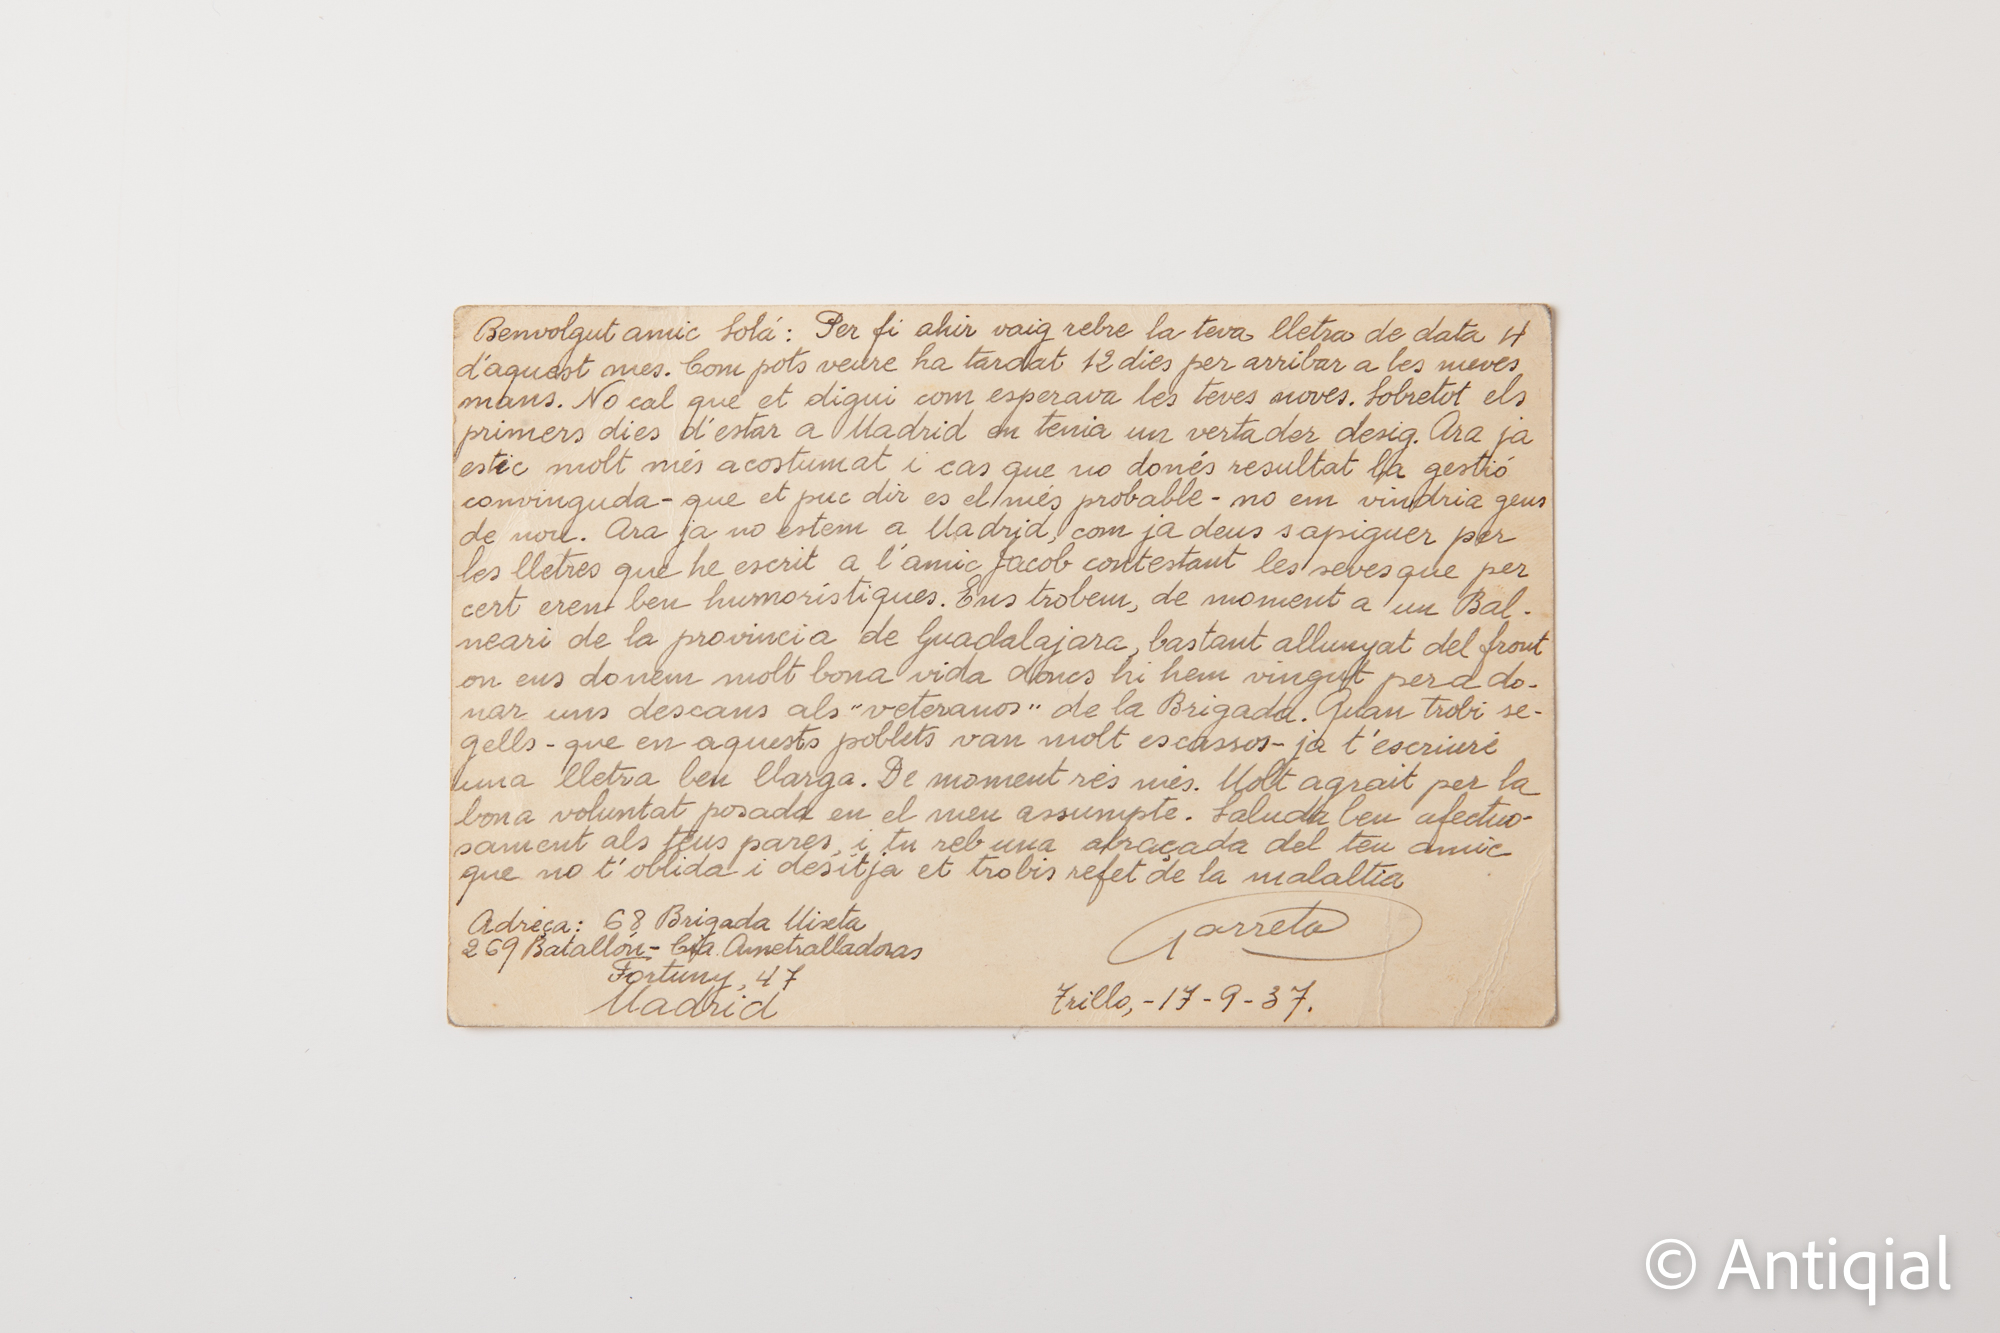 Benvolgut amic Solá: Per fi ahir vaig rebre la teva lletra de data 4
d'aquest mes. Com pots veure ha tardat 12 dies per arribar a les meves
mans. No cal que et digui com esperava les teves noves. Sobretot els
primers dies d'estar a Madrid en tenia un vertader desig. Ara ja
estic molt més acostumat i cas que no donés resultat la gestió
convinguda - que et puc dir es el més probable - no em vindria gens
de nou. Ara ja no estem a Madrid, com ja deus sapiguer per
les lletres que he escrit a l'amic Jacob contestant les seves que per
cert eren ben humorístiques. Ens trobem, de moment a un Bal-
neari de la provincia de Guadalajara, bastant allunyat del front
on ens donem molt bona vida doncs hi hem vingut per a do-
nar uns descans als "veteranos" de la Brigada. Quan trobi se-
gells - que en aquests poblets van molt escassos - ja t'escriuré
una lletra ben llarga. De moment rés més. Molt agrait per la
bona voluntat posada en el meu assumpte. Saluda ben afectuo-
sament als teus pares, i tu reb una abraçada del teu amic
que no t'oblida i desitja et trobis refet de la malaltia
Garreta
Adreça: 68 Brigada Mixta
269 Batallón - Cía Ametralladoras
Fortuny, 47
Madrid
Trillo, - 17 - 9 - 37.
© Antiqial